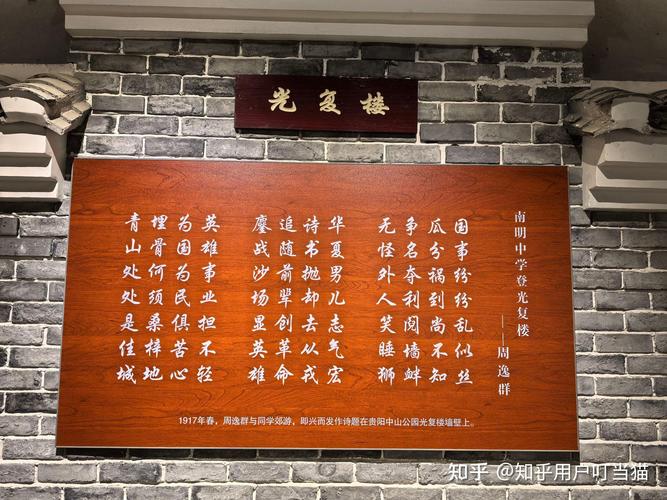 光复楼
南明中学登光复楼
——周逸群
国事纷纷乱似丝
瓜分祸到尚不知
争名夺利阋墙衅
无怪外人笑睡狮
华夏男儿志气宏
诗书抛却去从戎
追随前辈创革命
鏖战沙场显英雄
英雄事业担不轻
为国为民俱苦心
埋骨何须桑梓地
青山处处是佳城
1917年春，周逸群与同学郊游，即兴而发作诗题在贵阳中山公园光复楼墙壁上。
知乎 @知乎用户叮当猫